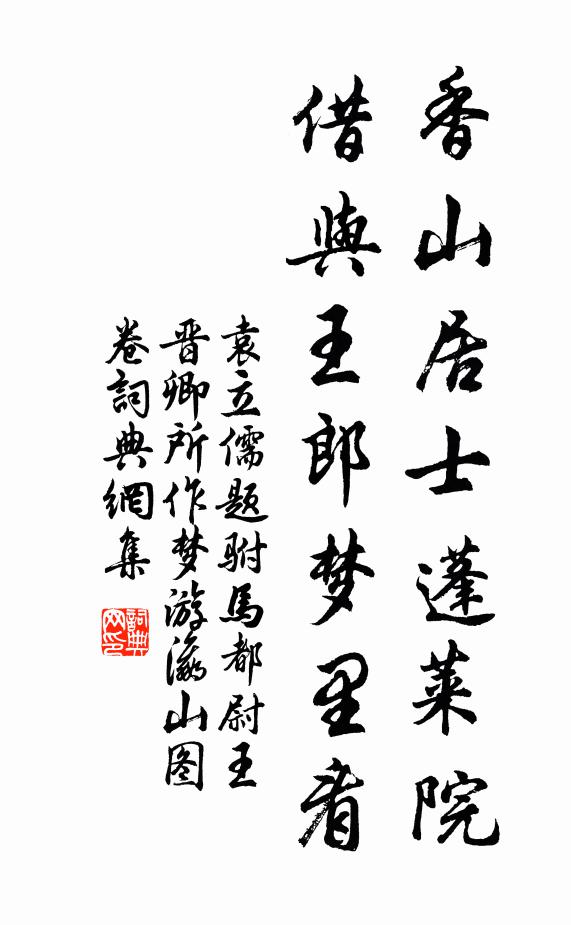 香山居士蓬莱院
借與王郎梦里看
袁立儒题駙馬都尉王
晋卿所作梦游瀛山图
卷詞典網集
詞典
网印